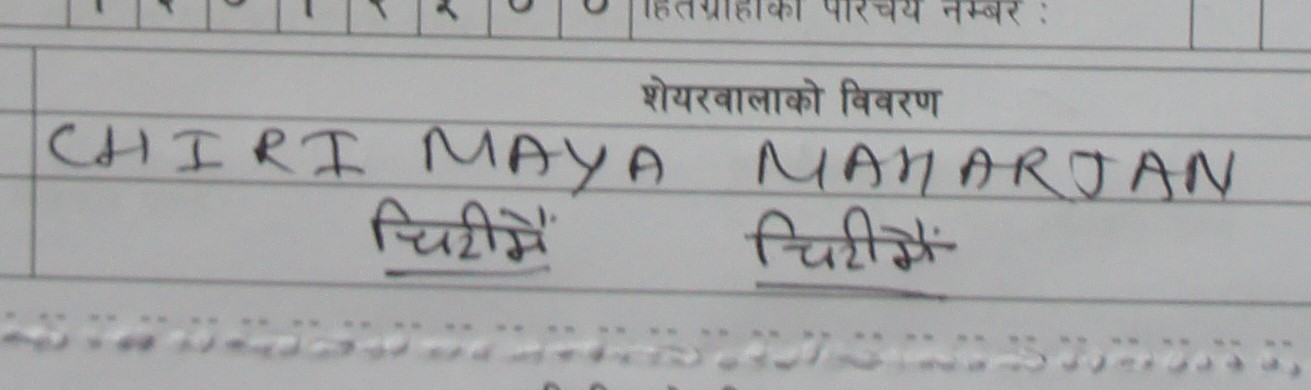 हितग्राहीको परिचय नम्बर :
शेयरवालाको विवरण
CHIRI MAYA MAHARJAN
चिरीमैं चिरीमैं